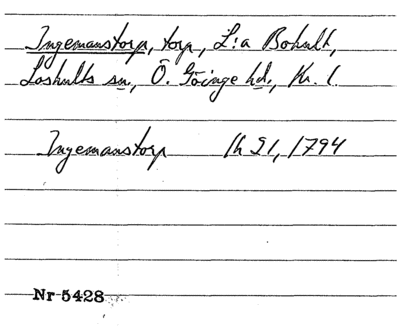 Ingemanstorp, torp, L:a Bohult,
Loshults sn, Ö. Göinge hd., Kr. l.
Ingemanstorp lh 21, 1794
Nr 5428